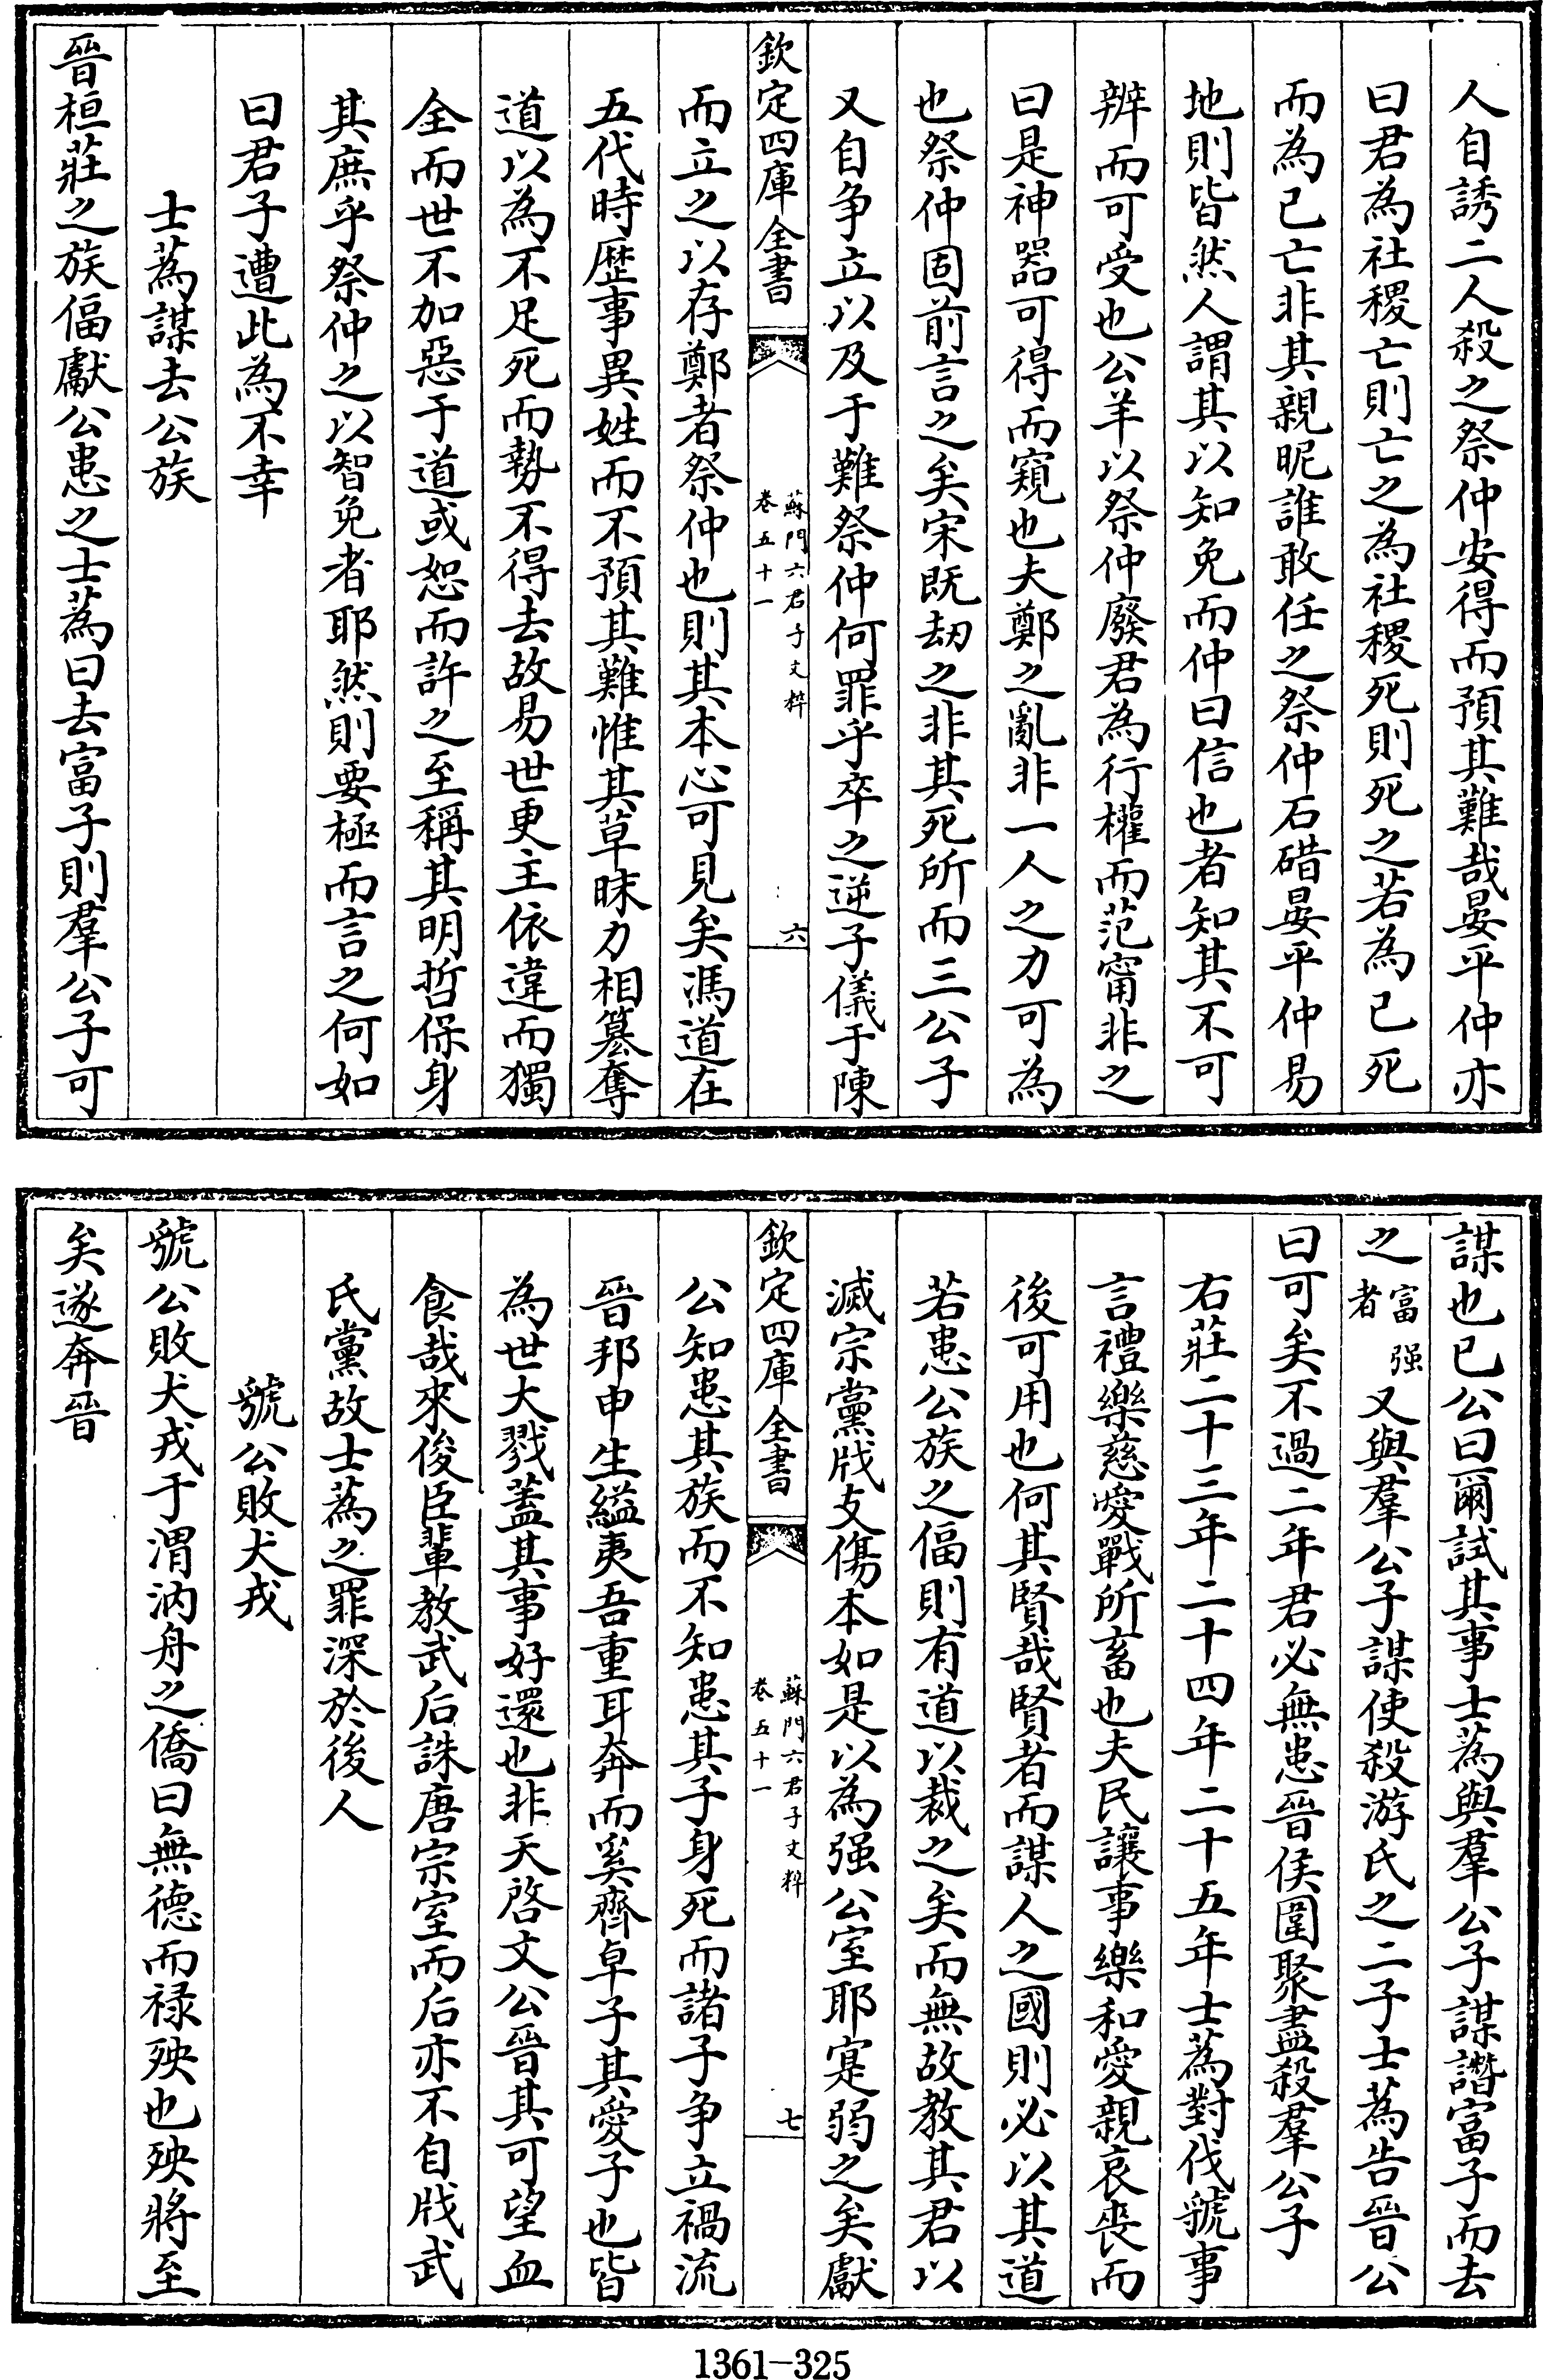 人自誘二人殺之祭仲安得而預其難哉晏平仲亦
曰君為社稷亡則亡之為社稷死則死之若為已死
而為已亡非其親昵誰敢任之祭仲石碏晏平仲易
地則皆然人謂其以知免而仲曰信也者知其不可
辨而可受也公羊以祭仲廢君為行權而范甯非之
曰是神器可得而窺也夫鄭之亂非一人之力可為
也祭仲固前言之矣宋既劫之非其死所而三公子
又自争立以及于難祭仲何罪乎卒之逆子儀于陳
欽定四庫全書
蘇門六君子文粹
卷五十一
六
而立之以存鄭者祭仲也則其本心可見矣馮道在
五代時歴事異姓而不預其難惟其草昧力相簒奪
道以為不足死而勢不得去故易世更主依違而獨
全而世不加惡于道或恕而許之至稱其明哲保身
其庶乎祭仲之以智免者耶然則要極而言之何如
曰君子遭此為不幸
士蒍謀去公族
晉桓莊之族偪獻公患之士蒍曰去富子則羣公子可
謀也已公曰爾試其事士蒍與羣公子謀譖富子而去
之富强者又與羣公子謀使殺游氏之二子士蒍告晉公
曰可矣不過二年君必無患晉侯圍聚盡殺羣公子
右莊二十三年二十四年二十五年士蒍對伐虢事
言禮樂慈愛戰所畜也夫民讓事樂和愛親哀喪而
後可用也何其賢哉賢者而謀人之國則必以其道
若患公族之偪則有道以裁之矣而無故教其君以
滅宗黨戕支傷本如是以為强公室耶寔弱之矣獻
欽定四庫全書
蘇門六君子文粹
卷五十一
七
公知患其族而不知患其子身死而諸子争立禍流
晉邦申生縊夷吾重耳奔而奚齊卓子其愛子也皆
為世大戮蓋其事好還也非天啓文公晉其可望血
食哉來俊臣輩教武后誅唐宗室而后亦不自戕武
氏黨故士蒍之罪深於後人
虢公敗犬戎
虢公敗犬戎于渭汭舟之僑曰無德而禄殃也殃將至
矣遂奔晉
1361-325